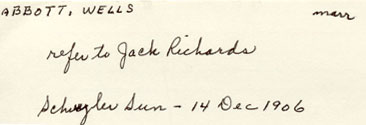 ABBOTT, WELLS marr
refer to Jack Richards
Schuyler Sun - 14 Dec 1906